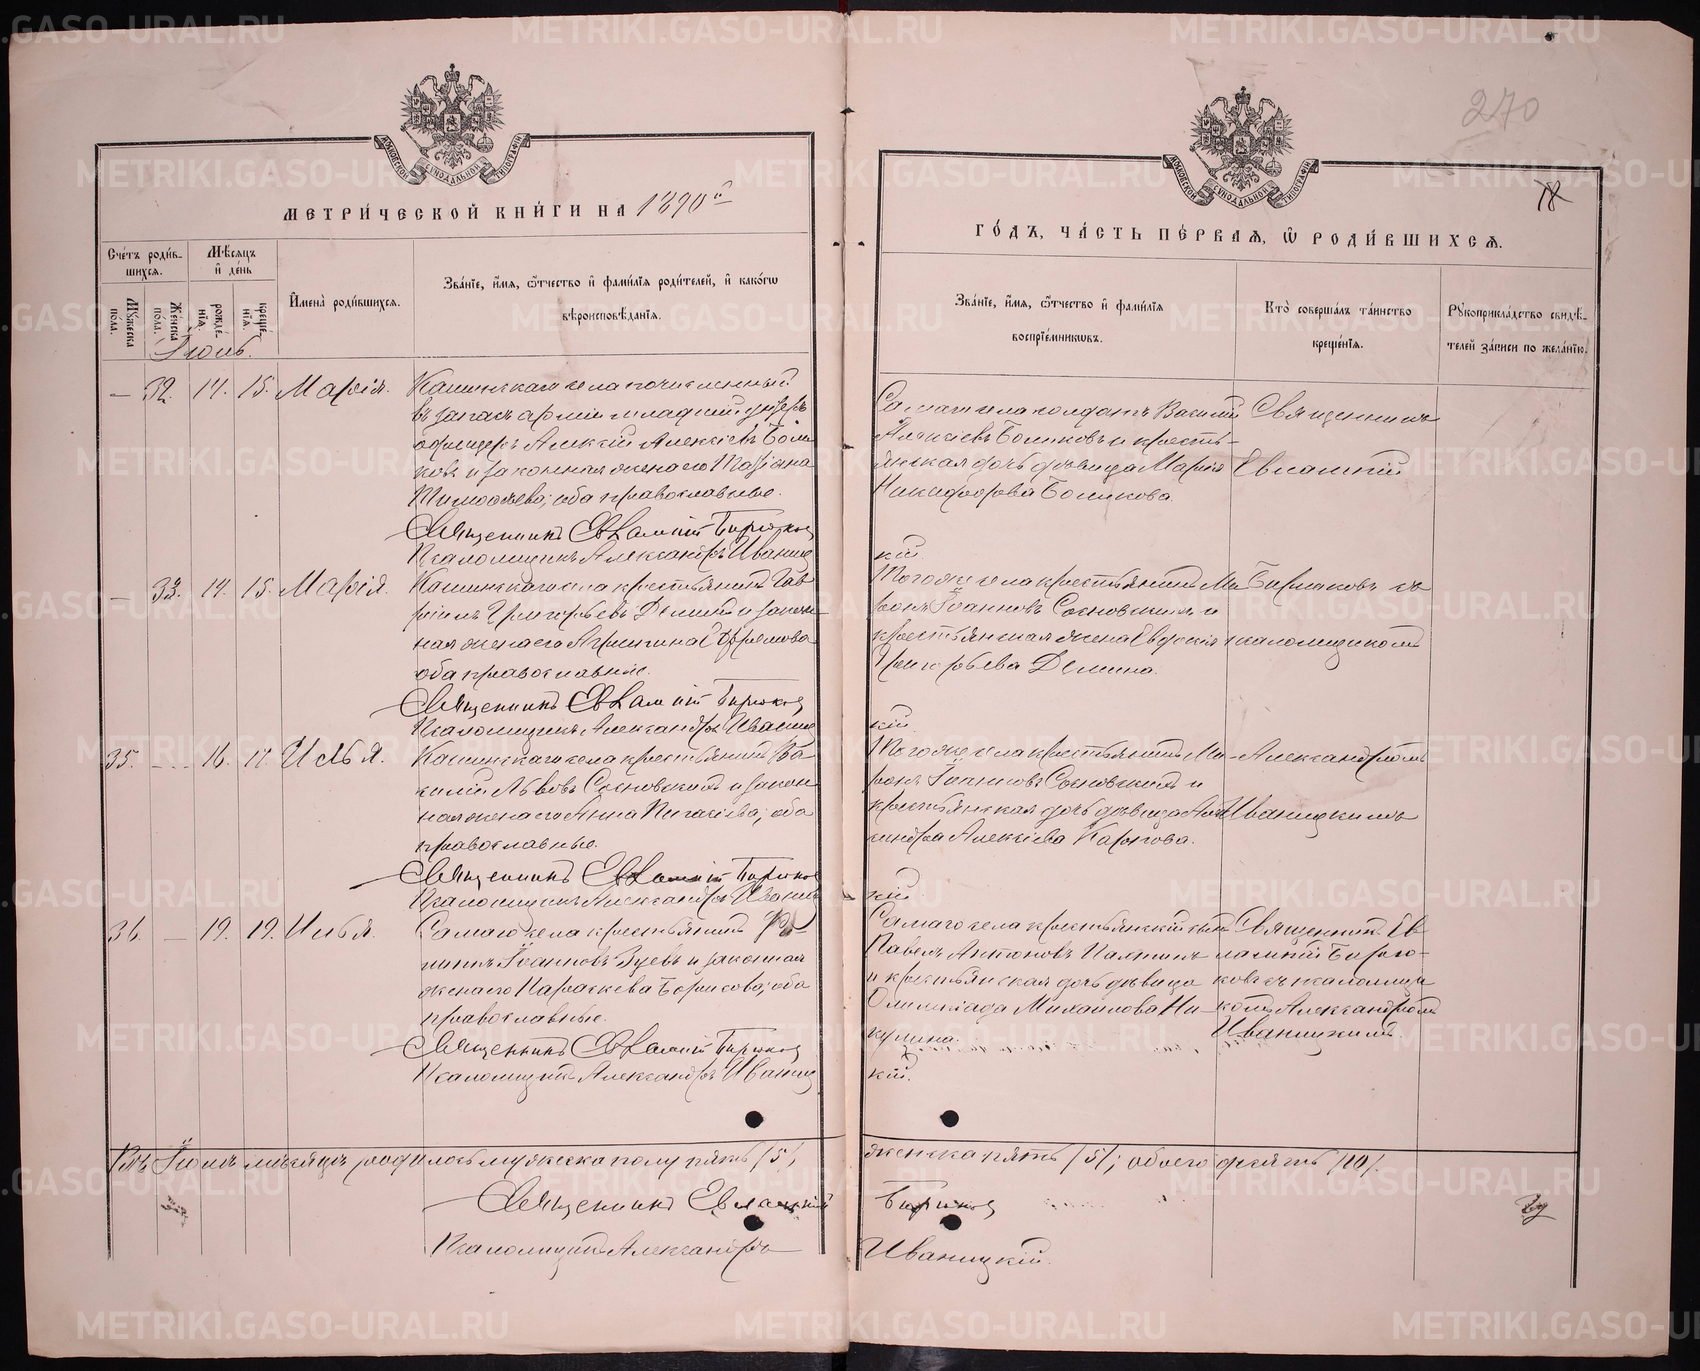 270
18
МОСКОВСКОЙ СѴНОДАЛЬНОЙ ТИПОГРАФІИ
МОСКОВСКОЙ СѴНОДАЛЬНОЙ ТИПОГРАФІИ
МЕТРИ́ЧЕСКОЙ КНИ́ГИ НА 1890й
ГО́ДЪ, ЧА́СТЬ ПЕ́РВАЯ, Ѡ РОДИ́ВШИХСЯ.
Сче́тъ роди́в-
шихся.
Мѣ́сяцъ
и де́нь
Мꙋжеска по́ла.
Же́нска по́ла.
рожде́нїя.
креще́нїя.
И́мена̀ роди́вшихся.
Зва́нїе, и́мя, ѻ́тчество и фами́лїя роди́телей, и како́гѡ
вѣроисповѣ́данїя.
Зва́нїе, и́мя, ѻ́тчество и фами́лїя
воспрїе́мникѡвъ.
Кто̀ соверша́лъ та́инство
креще́нїя.
Рꙋкоприкла́дство свидѣ́-
телей за́писи по жела́нїю.
Іюнь.
— 32. 14. 15. Марія.
Кашинскаго села зачисленный
въ запасъ арміи младшій унтеръ
офицеръ Алексій Алексіевъ Боли
ковъ и законная жена его Татіана
Тимофеева; оба православные.
Священникъ Евламгій Бирюков
Псаломщикъ Александръ Иваниц
Солдатъ Василій
Алексіевъ Боликовъ и кресть-
янская дочь девица Марія
Никифорова Боликова.
кій.
Священникъ
Евлампій
— 33. 14. 15. Марія.
Кашинскаго села крестьянинъ Гав
ріилъ Григорьевъ Деминъ и закон
ная жена его Агрипина Ефремова
оба православные.
Священникъ Евлампій Бирюков
Псаломщикъ Александръ Иваниц
Тогоже села крестьянинъ Ми
ронъ Іоанновъ Сосновскихъ и
крестьянская жена Евдокія
Григорьева Демина.
кій.
Бирюковъ съ
псаломщикомъ
35. — 16. 17. Илья.
Кашинскаго села крестьянинъ Ва
силій Львовъ Сосновскихъ и закон
ная жена его Анна Пигасіева; оба
православные.
Священникъ Евлампій Бирюков
Псаломщикъ Александръ Иваниц
Тогоже села крестьянинъ Ми-
ронъ Іоанновъ Сосновскихъ и
крестьянская дочь девица Але
ксандра Алексіева
кій
Александромъ
Иваницкимъ
36. — 19. 19. Илья.
Самаго села крестьянинъ Фи-
липпъ Іоанновъ Зуевъ и законная
жена его Параскева Борисова; оба
православные.
Священникъ Евлампій Бирюков
Псаломщикъ Александръ Иваниц
Самаго села крестьянскій сынъ
Павелъ Антоновъ
и крестьянская дочь девица
Олимпіада Михаилова Ни
кулина.
кій.
Священникъ Ев
лампій Бирю-
ковъ съ псаломщи
комъ Александромъ
Иваницкимъ.
Въ Іюнѣ месяцѣ родилось мужеска полу пять /5/,
женска пять /5/; обоего десять /10/.
Священникъ Евлампій Бирюков
Псаломщикъ Александръ Иваницкій.
METRIKI.GASO-URAL.RU